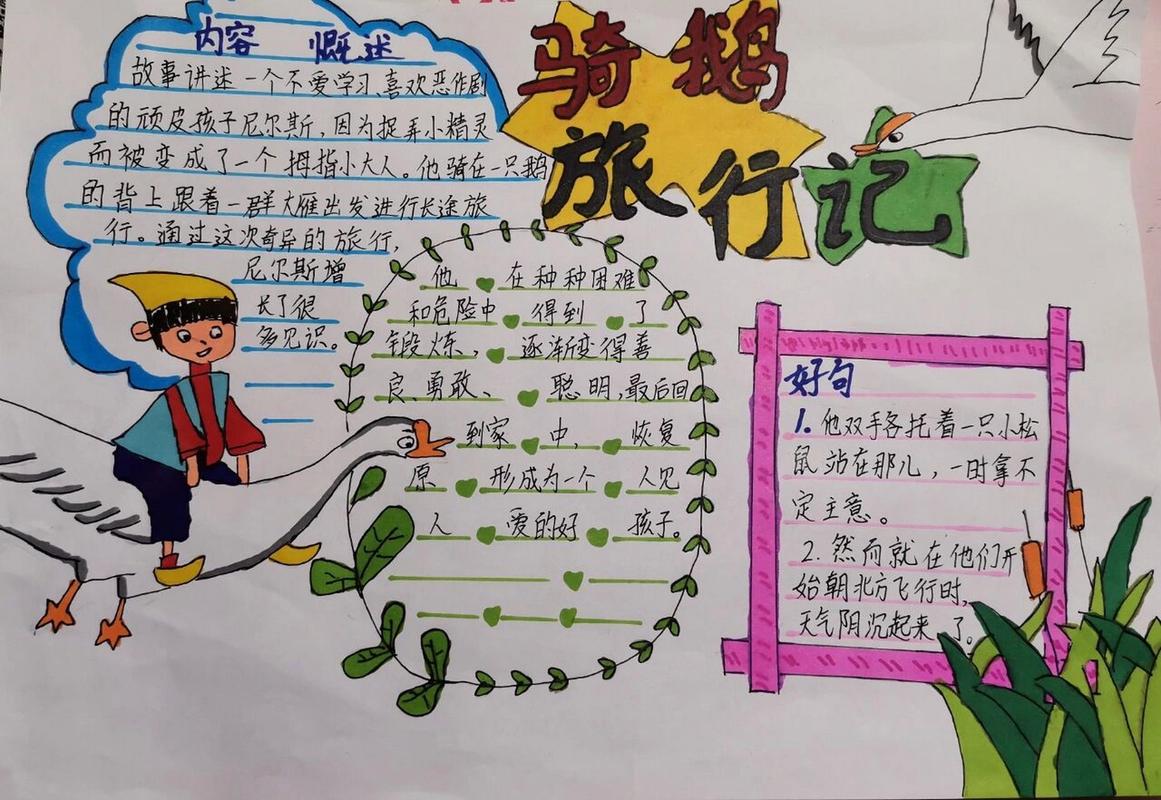 骑鹅
旅行记
内容 慨述
故事讲述一个不爱学习、喜欢恶作剧
的顽皮孩子尼尔斯，因为捉弄小精灵
而被变成了一个拇指小大人。他骑在一只鹅
的背上跟着一群大雁出发进行长途旅
行。通过这次奇异的旅行，
尼尔斯增
长了很
多见识。
他在种种困难
和危险中得到了
锻炼，逐渐变得善
良、勇敢、聪明，最后回
到家中，恢复
原形成为一个人见
人爱的好孩子。
好句
1. 他双手各托着一只小松
鼠站在那儿，一时拿不
定主意。
2. 然而就在他们开
始朝北方飞行时，
天气阴沉起来了。